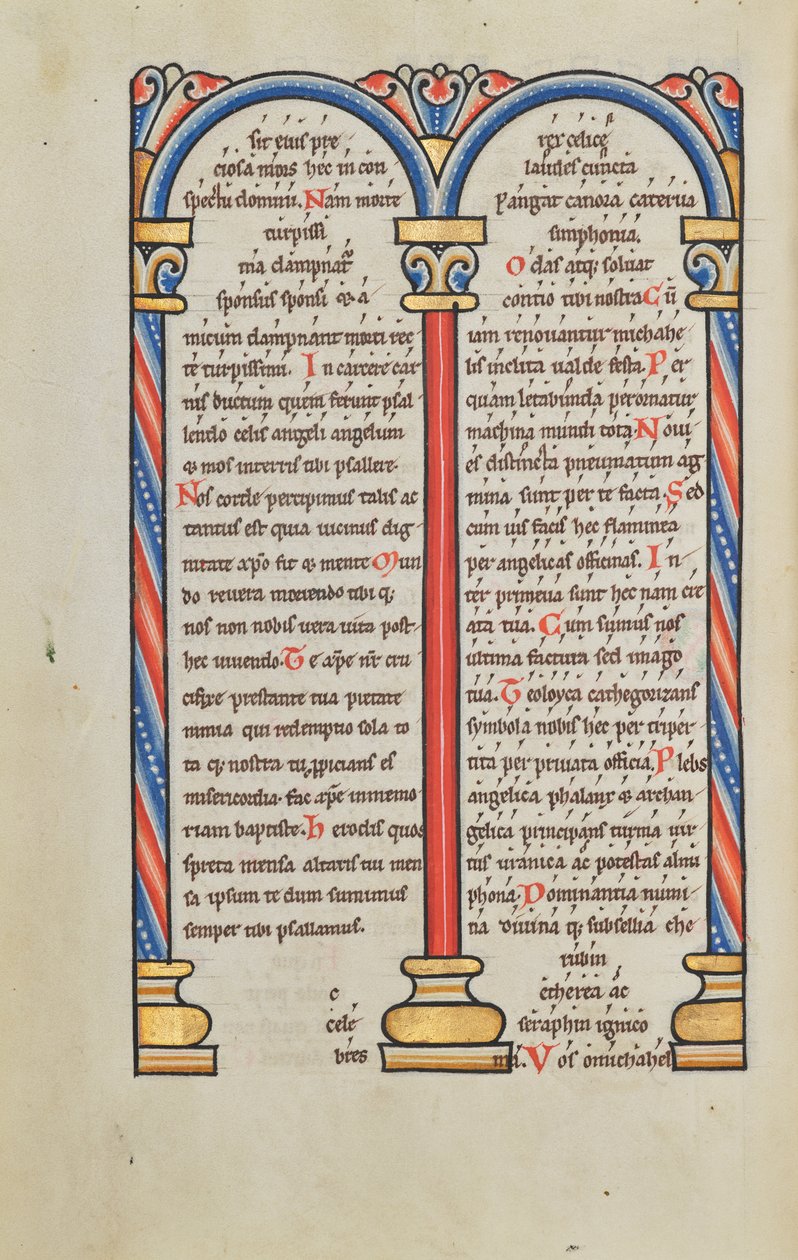 sit eius pre
ciosa mors hec in con
spectu domini. Nam morte
turpissi
ma dampnat᷑
sponsus sponsi & a
micum dampnant morti rec
te turpissimi. In carcere car
nis ductum quem ferunt psal
lendo celis angeli angelum
& nos in terris tibi psallere.
Nos corde percipimus talis ac
tantus est quia uicinus dig
nitate xp̄o fit & mente Mun
do reuera moriendo tibi q;
nos non nobis uera uita post
hec uiuendo. Te xp̄e nr̄ cru
cifixe prestante tua pietate
nimia qui redemptio sola to
ta q; nostra tu ꝓpicians es
misericordia. fac xp̄e in memo
riam baptiste. Herodis quos
spreta mensa altaris tui men
sa ipsum te dum sumimus
semper tibi psallamus.
c
cele
bres
rex celice
laudes cuncta
Pangat canora caterua
simphonia.
Odas atq; soluat
contio tibi nostra Cū
iam renouantur michahe
lis inclita ualde festa. Per
quam letabunda perornatur
machina mundi tota. Noui
es distincta pneumatum ag
mina sunt per te facta. Sed
cum uis facis hec flammea
per angelicas officinas. In
ter primeua sunt hec nam cre
ata tua. Cum simus nos
ultima factura sed imago
tua. Teoloyca cathegorizans
symbola nobis hec per triper
tita per priuata officia. Plebs
angelica phalanx & archan
gelica principans turma uir
tus uranica ac potestas almi
phona. Dominantia numi
na diuina q; subsellia che
rubin
etherea ac
seraphin ignico
ma. Vos o michahel